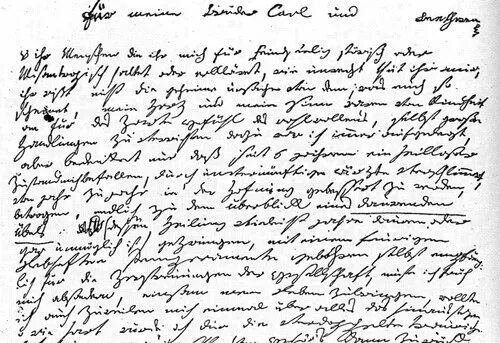 Für meine Brüder Carl und Beethowen
O ihr Menschen die ihr mich für Feindseelig störisch oder
Misantropisch haltet oder erkläret, wie unrecht thut ihr mir,
ihr wißt nicht die geheime urßache von dem, was euch so
scheinet, mein Herz und mein Sinn waren von Kindheit
an für das Zarte Gefühl des wohlwollens, selbst große
Handlungen zu verrichten dazu war ich immer aufgelegt,
aber bedenket nur daß seit 6 Jahren ein heilloser
Zustand mich befallen, durch unvernünftige ärzte verschlimmert,
von jahr zu jahr in der Hofnung gebessert zu werden,
betrogen, endlich zu dem überblick eines daurenden
Übels das (dessen Heilung vieleicht jahre dauren oder
gar unmöglich ist) gezwungen, mit einem feurigen
Lebhaften Temperamente gebohren selbst empfäng
lich für die Zerstreuungen der Gesellschaft, muste ich früh
mich absondern, einsam mein Leben zubringen, wollte
ich auch zuweilen mich einmal über alles das hinaussezen,
o wie hart wurde ich dur die verdoppelte traurige